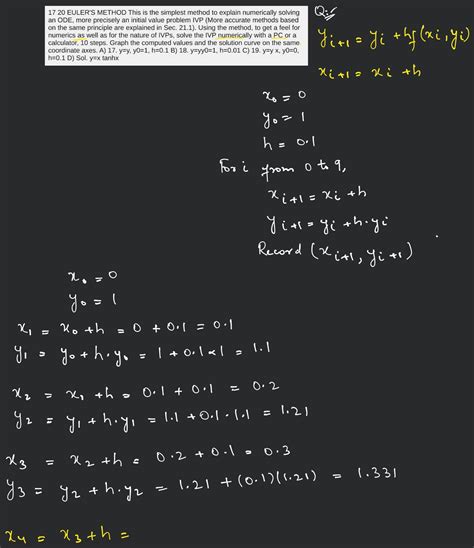 17 20 EULER'S METHOD This is the simplest method to explain numerically solving
an ODE, more precisely an initial value problem IVP (More accurate methods based
on the same principle are explained in Sec. 21.1). Using the method, to get a feel for
numerics as well as for the nature of IVPs, solve the IVP numerically with a PC or a
calculator, 10 steps. Graph the computed values and the solution curve on the same
coordinate axes. A) 17. y=y, y0=1, h=0.1 B) 18. y=yy0=1, h=0.01 C) 19. y=y x, y0=0,
h=0.1 D) Sol. y=x tanhx
Q:-
y_{i+1} = y_i + h f(x_i, y_i)
x_{i+1} = x_i + h
x₀ = 0
y₀ = 1
h = 0.1
For i from 0 to 9,
x_{i+1} = x_i + h
y_{i+1} = y_i + h·y_i
Record (x_{i+1}, y_{i+1})
x₀ = 0
y₀ = 1
x₁ = x₀ + h = 0 + 0.1 = 0.1
y₁ = y₀ + h·y₀ = 1 + 0.1×1 = 1.1
x₂ = x₁ + h = 0.1 + 0.1 = 0.2
y₂ = y₁ + h·y₁ = 1.1 + 0.1·1.1 = 1.21
x₃ = x₂ + h = 0.2 + 0.1 = 0.3
y₃ = y₂ + h·y₂ = 1.21 + (0.1)(1.21) = 1.331
x₄ = x₃ + h =